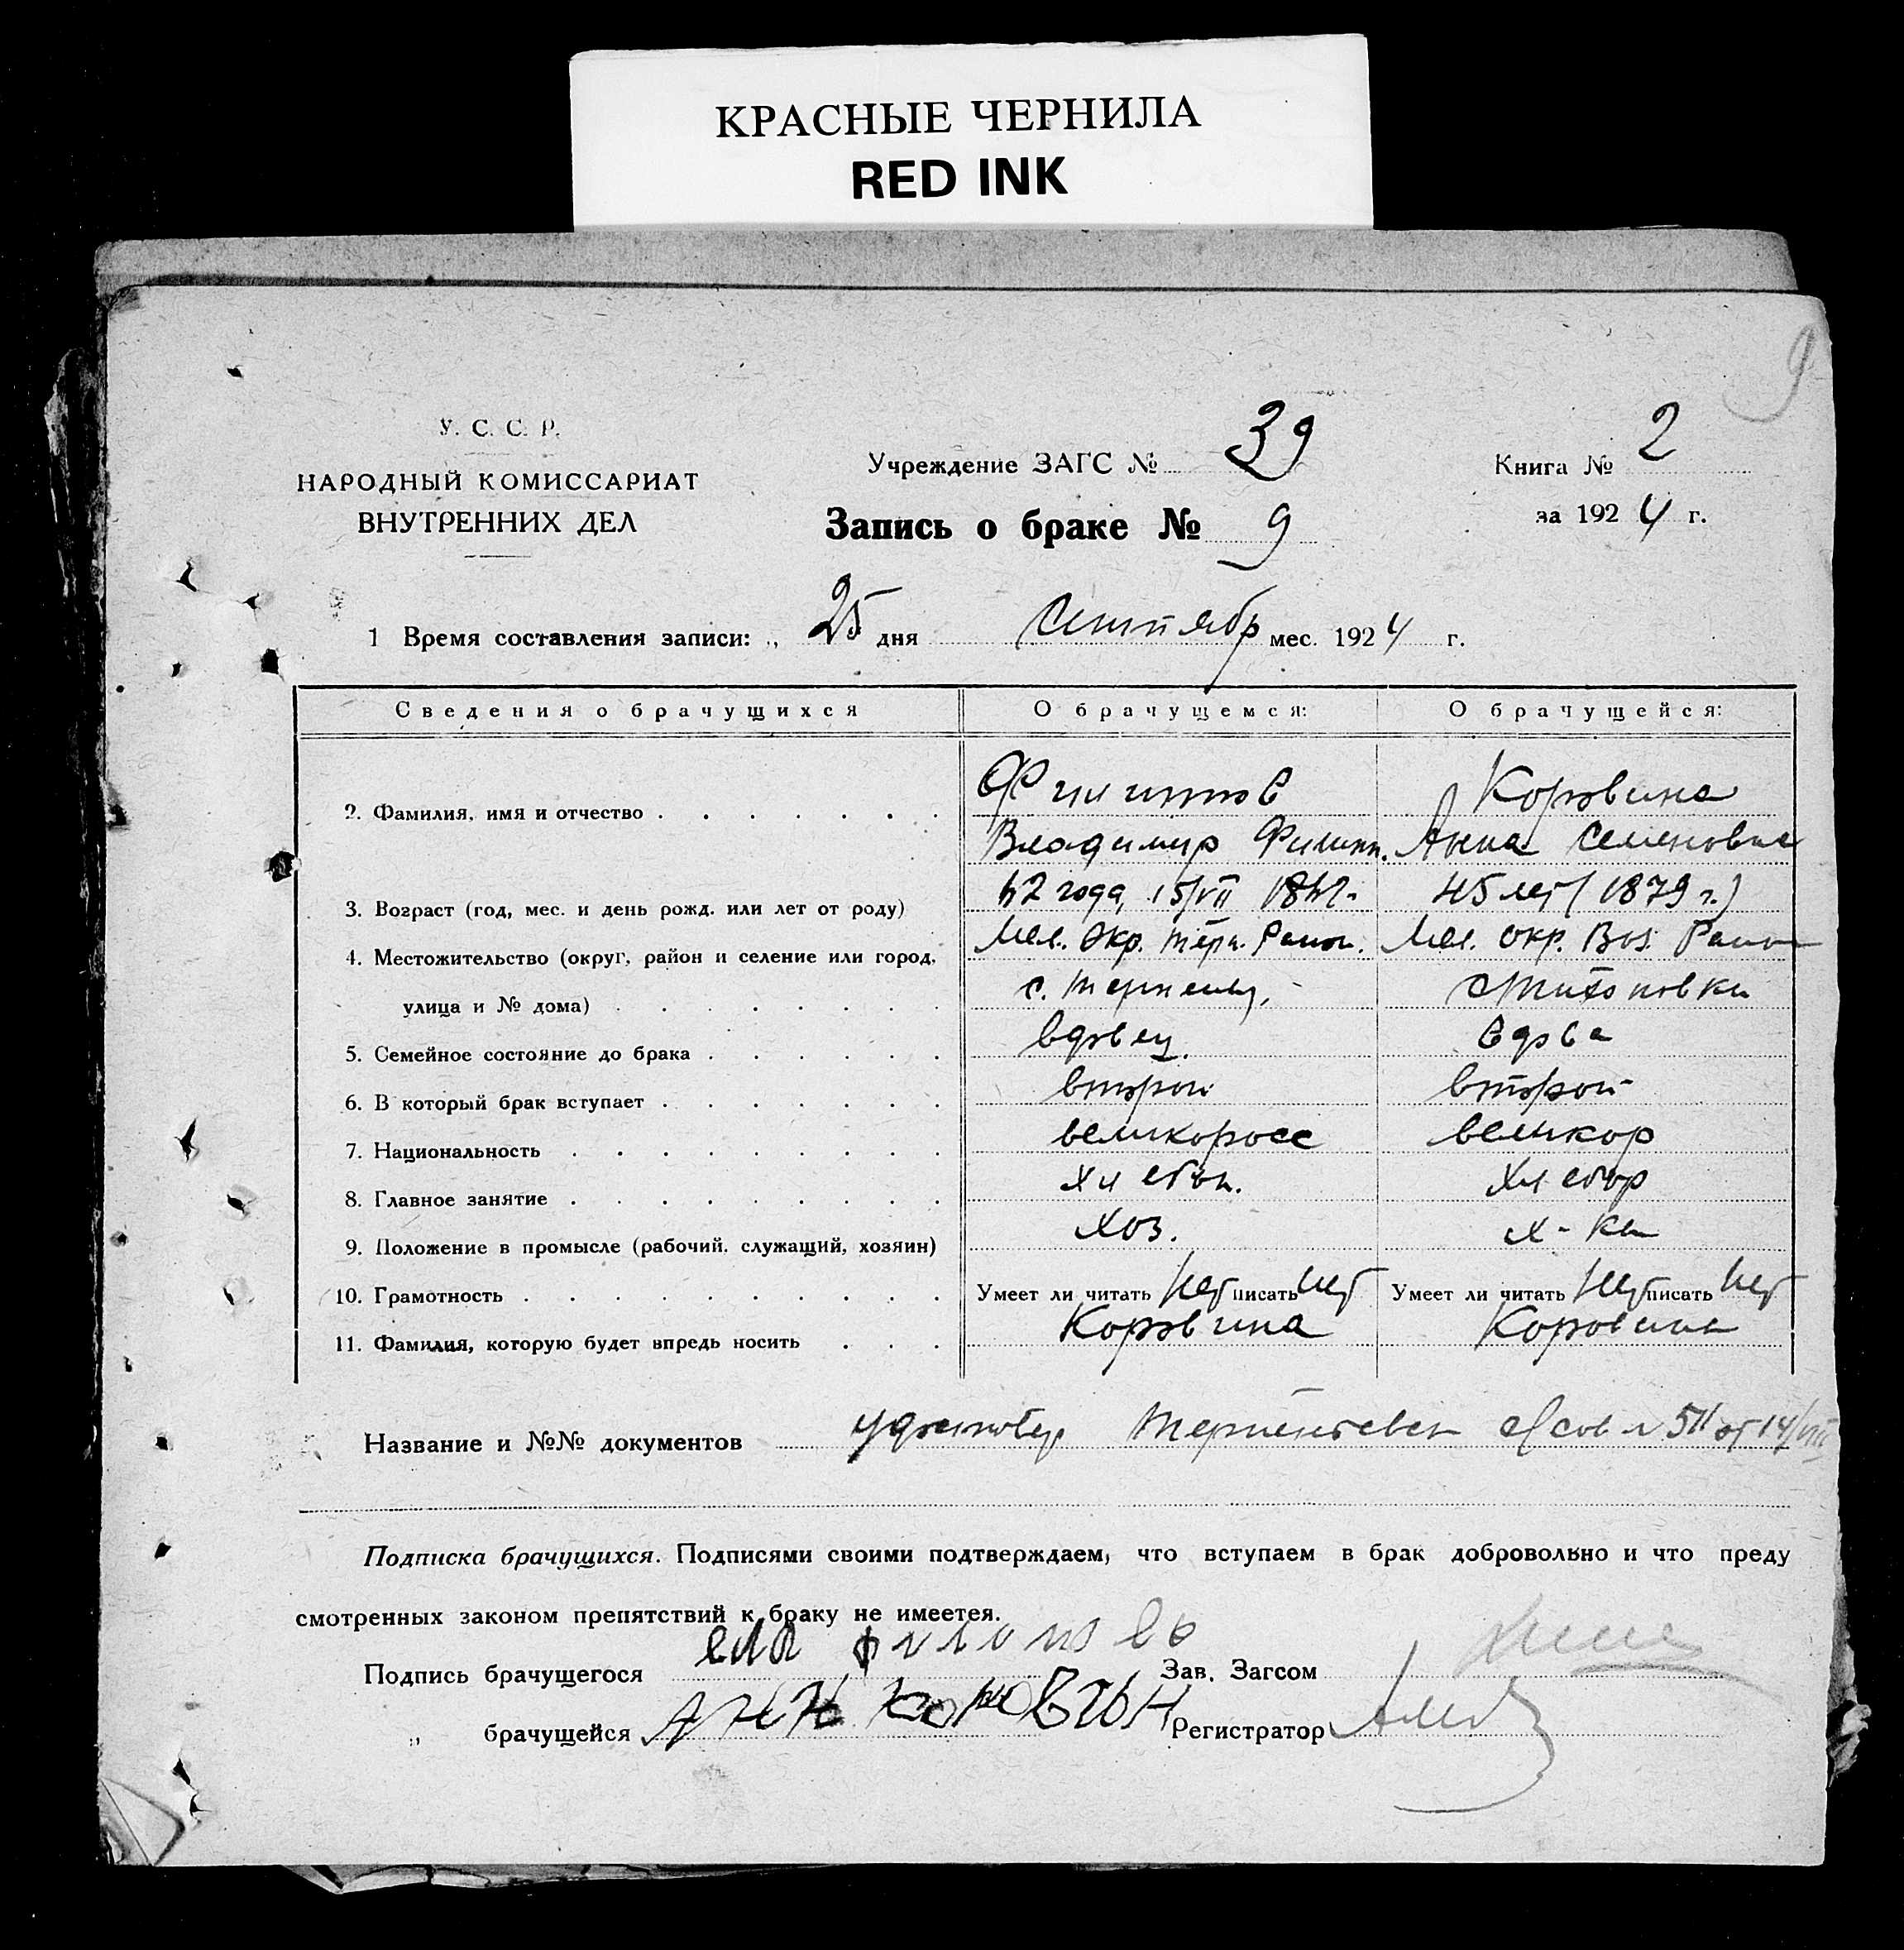 КРАСНЫЕ ЧЕРНИЛА
RED INK
9
У. С. С. Р.
НАРОДНЫЙ КОМИССАРИАТ
ВНУТРЕННИХ ДЕЛ
Учреждение ЗАГС № 39
Запись о браке № 9
Книга № 2
за 1924 г.
1 Время составления записи: „ 25 дня Сентябр мес. 1924 г.
Сведения о брачущихся О брачущемся: О брачущейся:
2. Фамилия, имя и отчество Филиппов Коровина
Владимир Филипп. Анна Семеновна
3. Возраст (год, мес. и день рожд. или лет от роду) 62 года, 15/VII 45 лет (1879 г.)
4. Местожительство (округ, район и селение или город, Мел. Окр. Терп. Район. Мел. окр. Воз. Район
улица и № дома) с.
5. Семейное состояние до брака вдовец. вдова
6. В который брак вступает второй второй
7. Национальность великоросс великор
8. Главное занятие Хлебоп. Хлебор
9. Положение в промысле (рабочий. служащий, хозяин) Хоз. х-ка
10. Грамотность Умеет ли читать Нет писать Нет Умеет ли читать Нет писать Нет
11. Фамилия, которую будет впредь носить Коровина Коровина
Название и №№ документов удостовер Терпеньевск с/сов № 511 от 14/VIII
Подписка брачущихся. Подписями своими подтверждаем, что вступаем в брак добровольно и что преду
смотренных законом препятствий к браку не имеетея.
Подпись брачущегося Зав. Загсом
„ брачущейся АНН КОРОВИН Регистратор